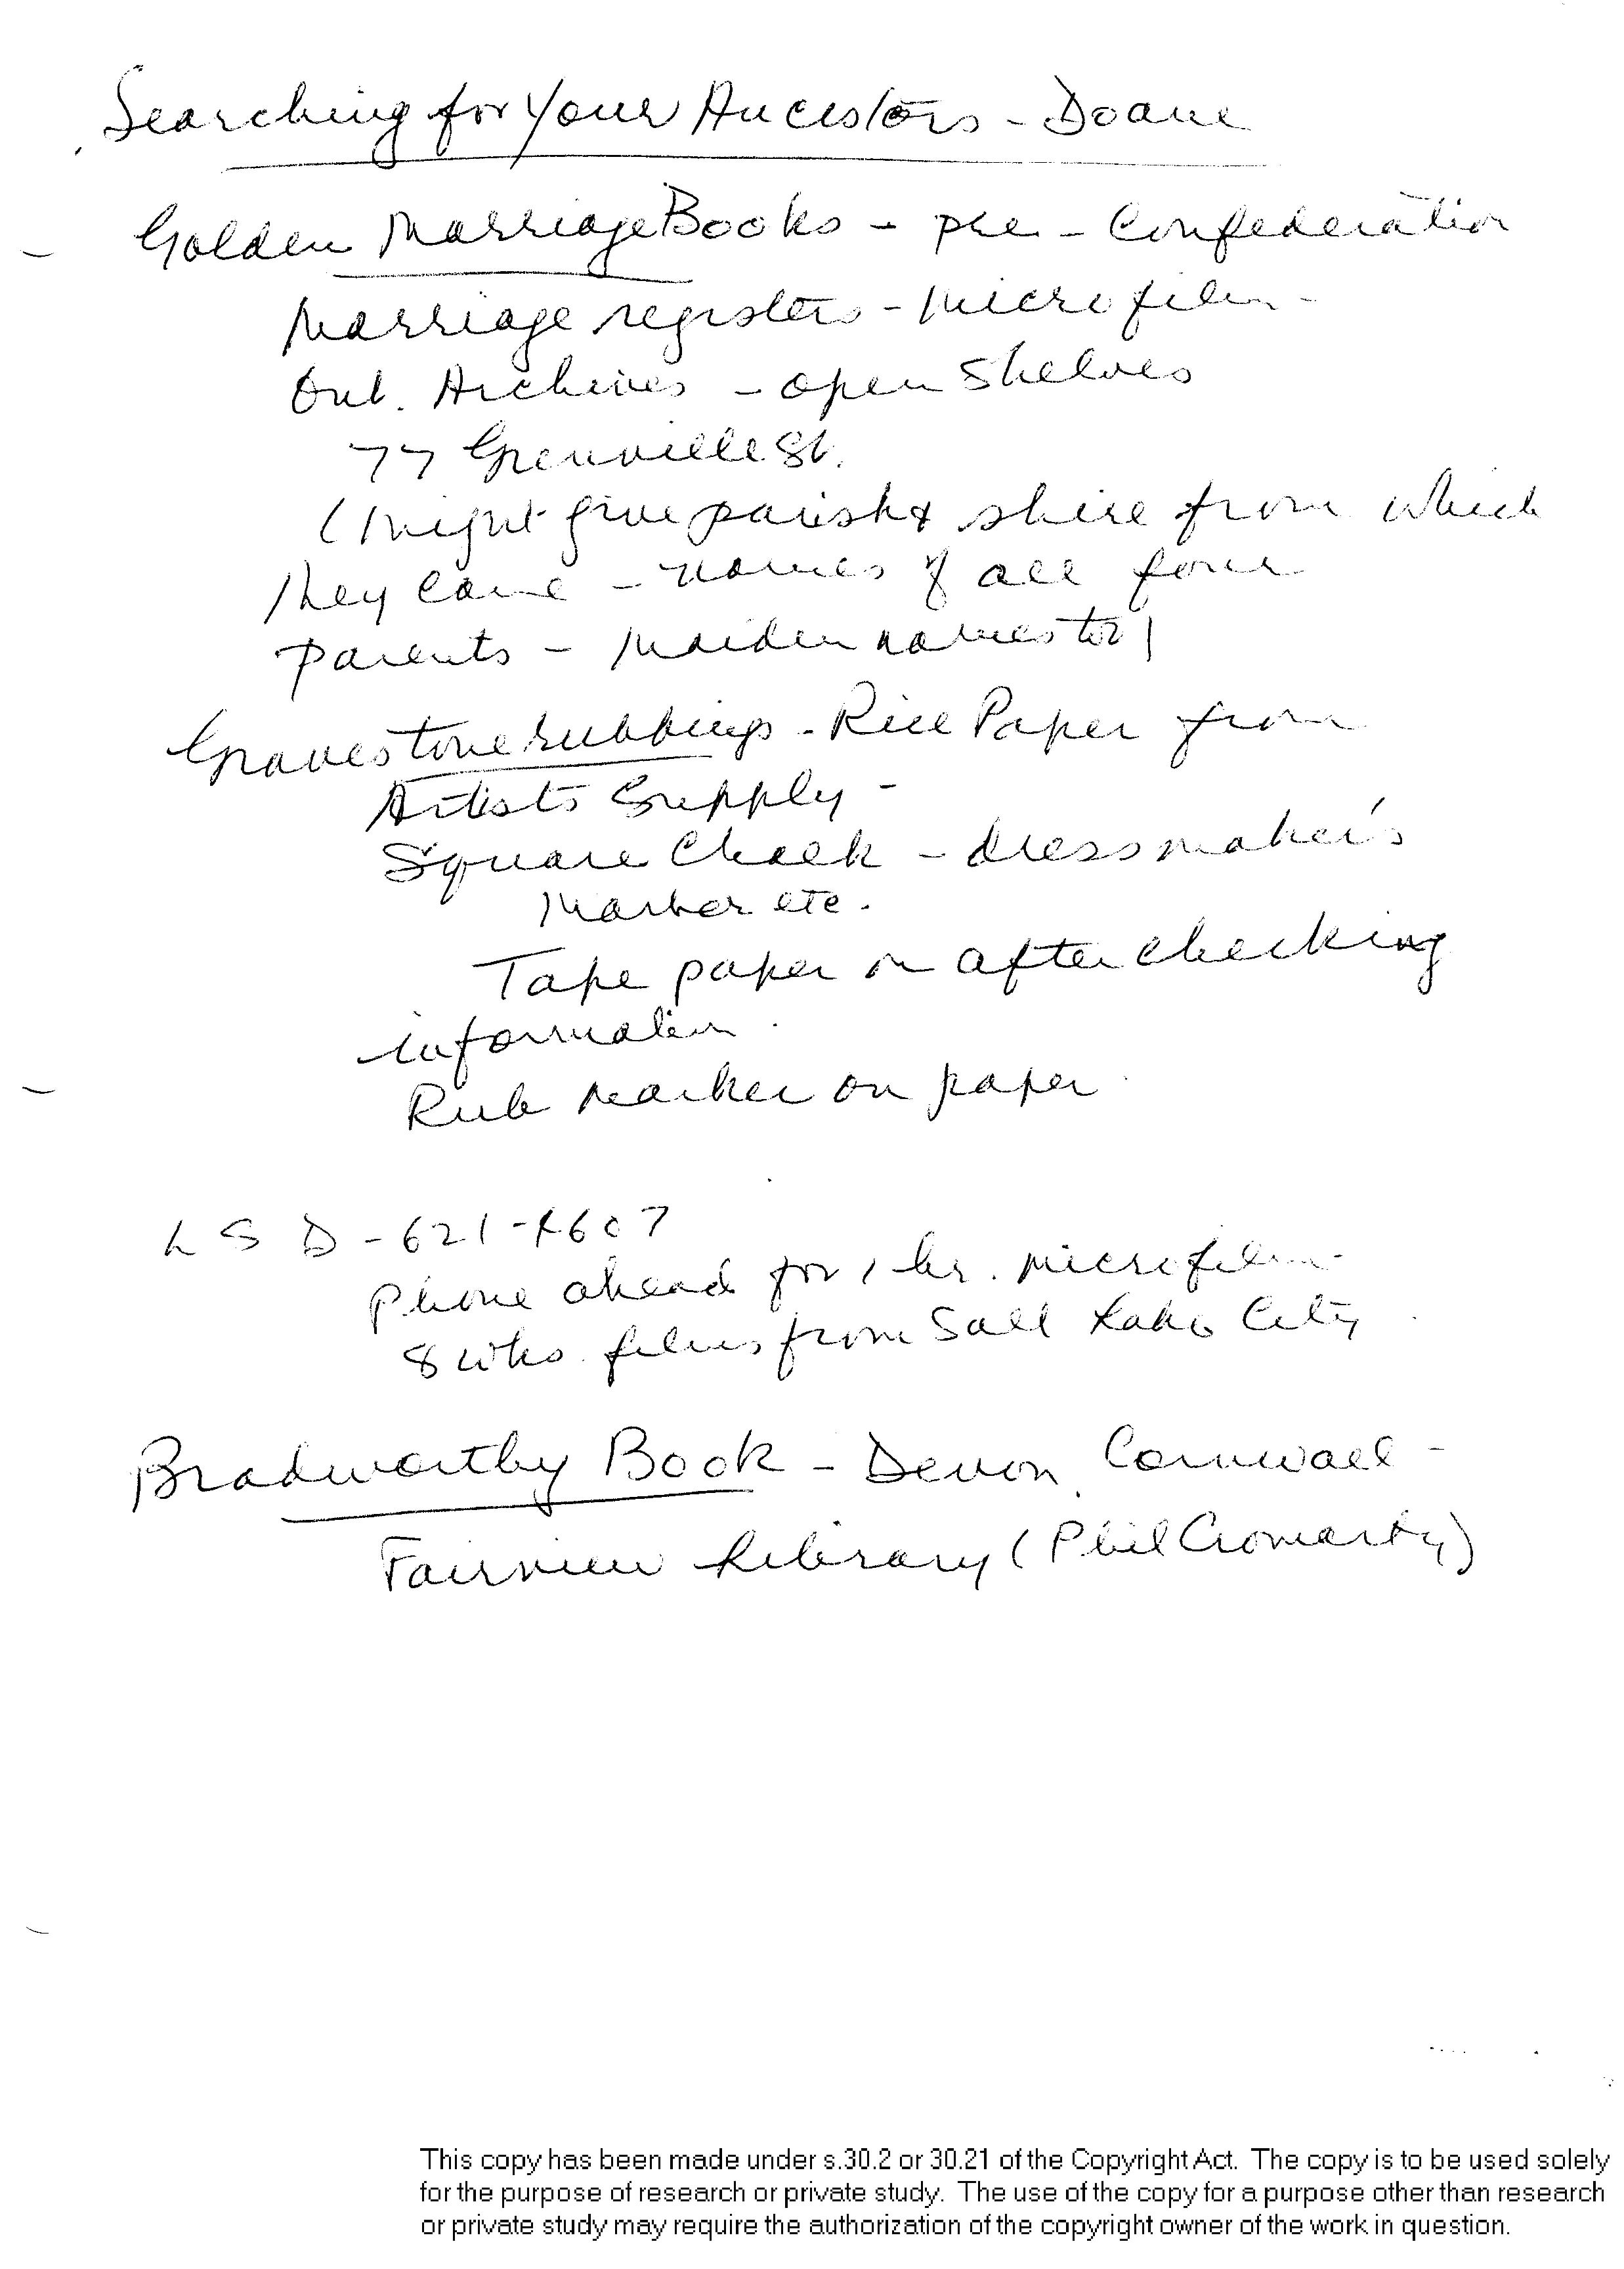 Searching for Your Ancestors - Doane
Golden Marriage Books - pre-Confederation
Marriage registers - Microfilm -
Ont. Archives - open Shelves
77 Grenville St.
(Might give parish & shire from which
they came - names of all four
Parents - Maiden names too)
Gravestone rubbings - Rice Paper from
Artists Supply -
Square Chalk - dressmaker's
Marker etc.
Tape paper on after checking
information.
Rub Marker on paper.
L S D - 621-4607
Phone ahead for 1 hr. microfilm
8 wks. films from Salt Lake City
Bradworthy Book - Devon, Cornwall -
Fairview Library (Phil Cromarty)
This copy has been made under s.30.2 or 30.21 of the Copyright Act. The copy is to be used solely
for the purpose of research or private study. The use of the copy for a purpose other than research
or private study may require the authorization of the copyright owner of the work in question.